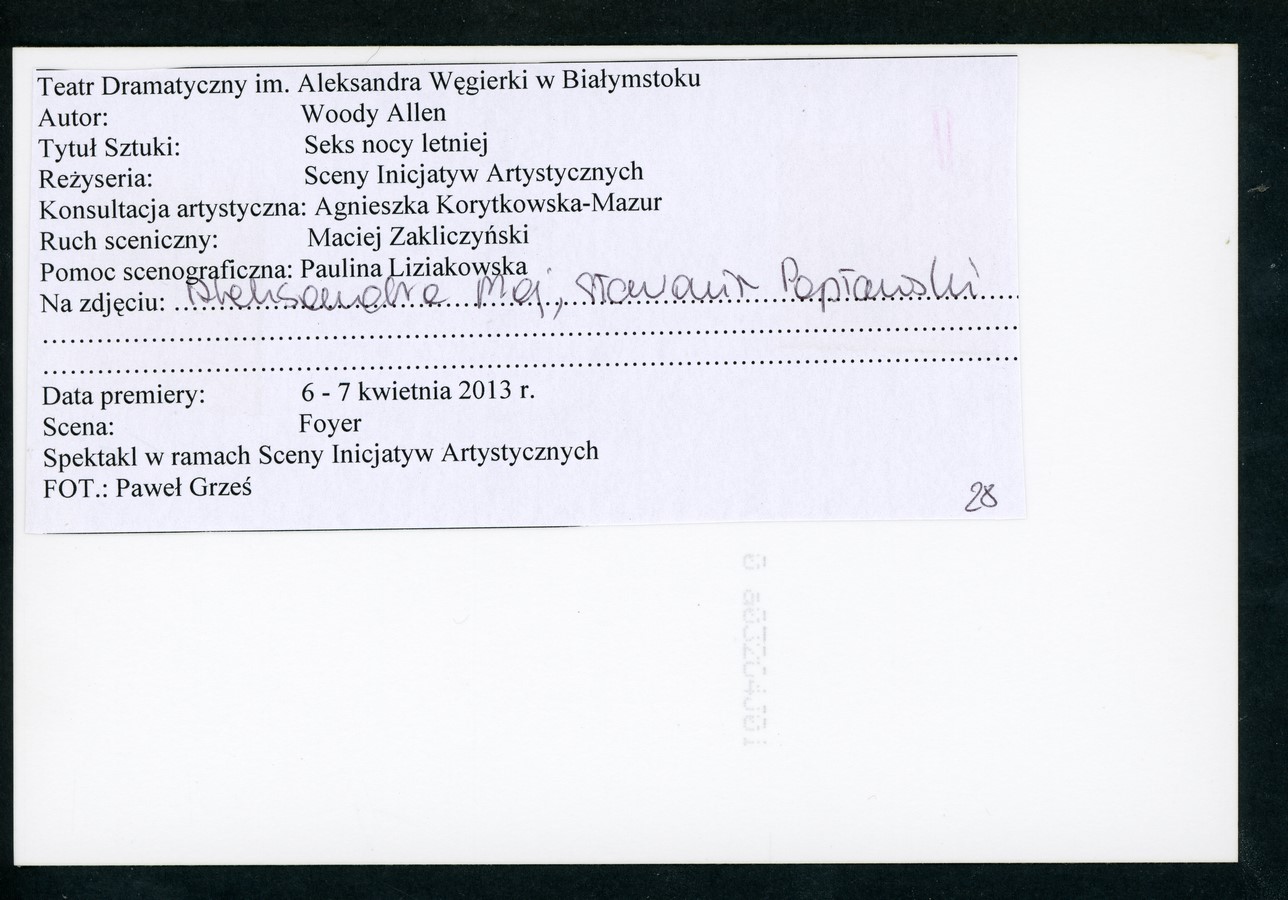 Teatr Dramatyczny im. Aleksandra Węgierki w Białymstoku
Autor: Woody Allen
Tytuł Sztuki: Seks nocy letniej
Reżyseria: Sceny Inicjatyw Artystycznych
Konsultacja artystyczna: Agnieszka Korytkowska-Mazur
Ruch sceniczny: Maciej Zakliczyński
Pomoc scenograficzna: Paulina Liziakowska
Na zdjęciu: Aleksandra Maj, Sławomir Popławski
Data premiery: 6 - 7 kwietnia 2013 r.
Scena: Foyer
Spektakl w ramach Sceny Inicjatyw Artystycznych
FOT.: Paweł Grześ
28